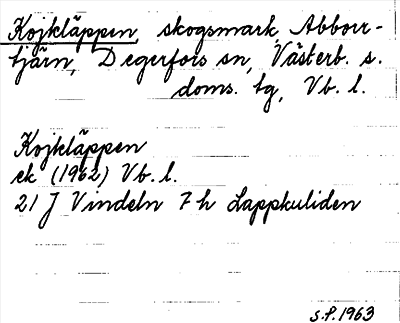 Kojkläppen, skogsmark, Abborr-
tjärn, Degerfors sn, Västerb. s.
doms. tg, Vb. l.
Kojkläppen
ek (1962) Vb. l.
21 J Vindeln 7 h Lappkuliden
S.P. 1963